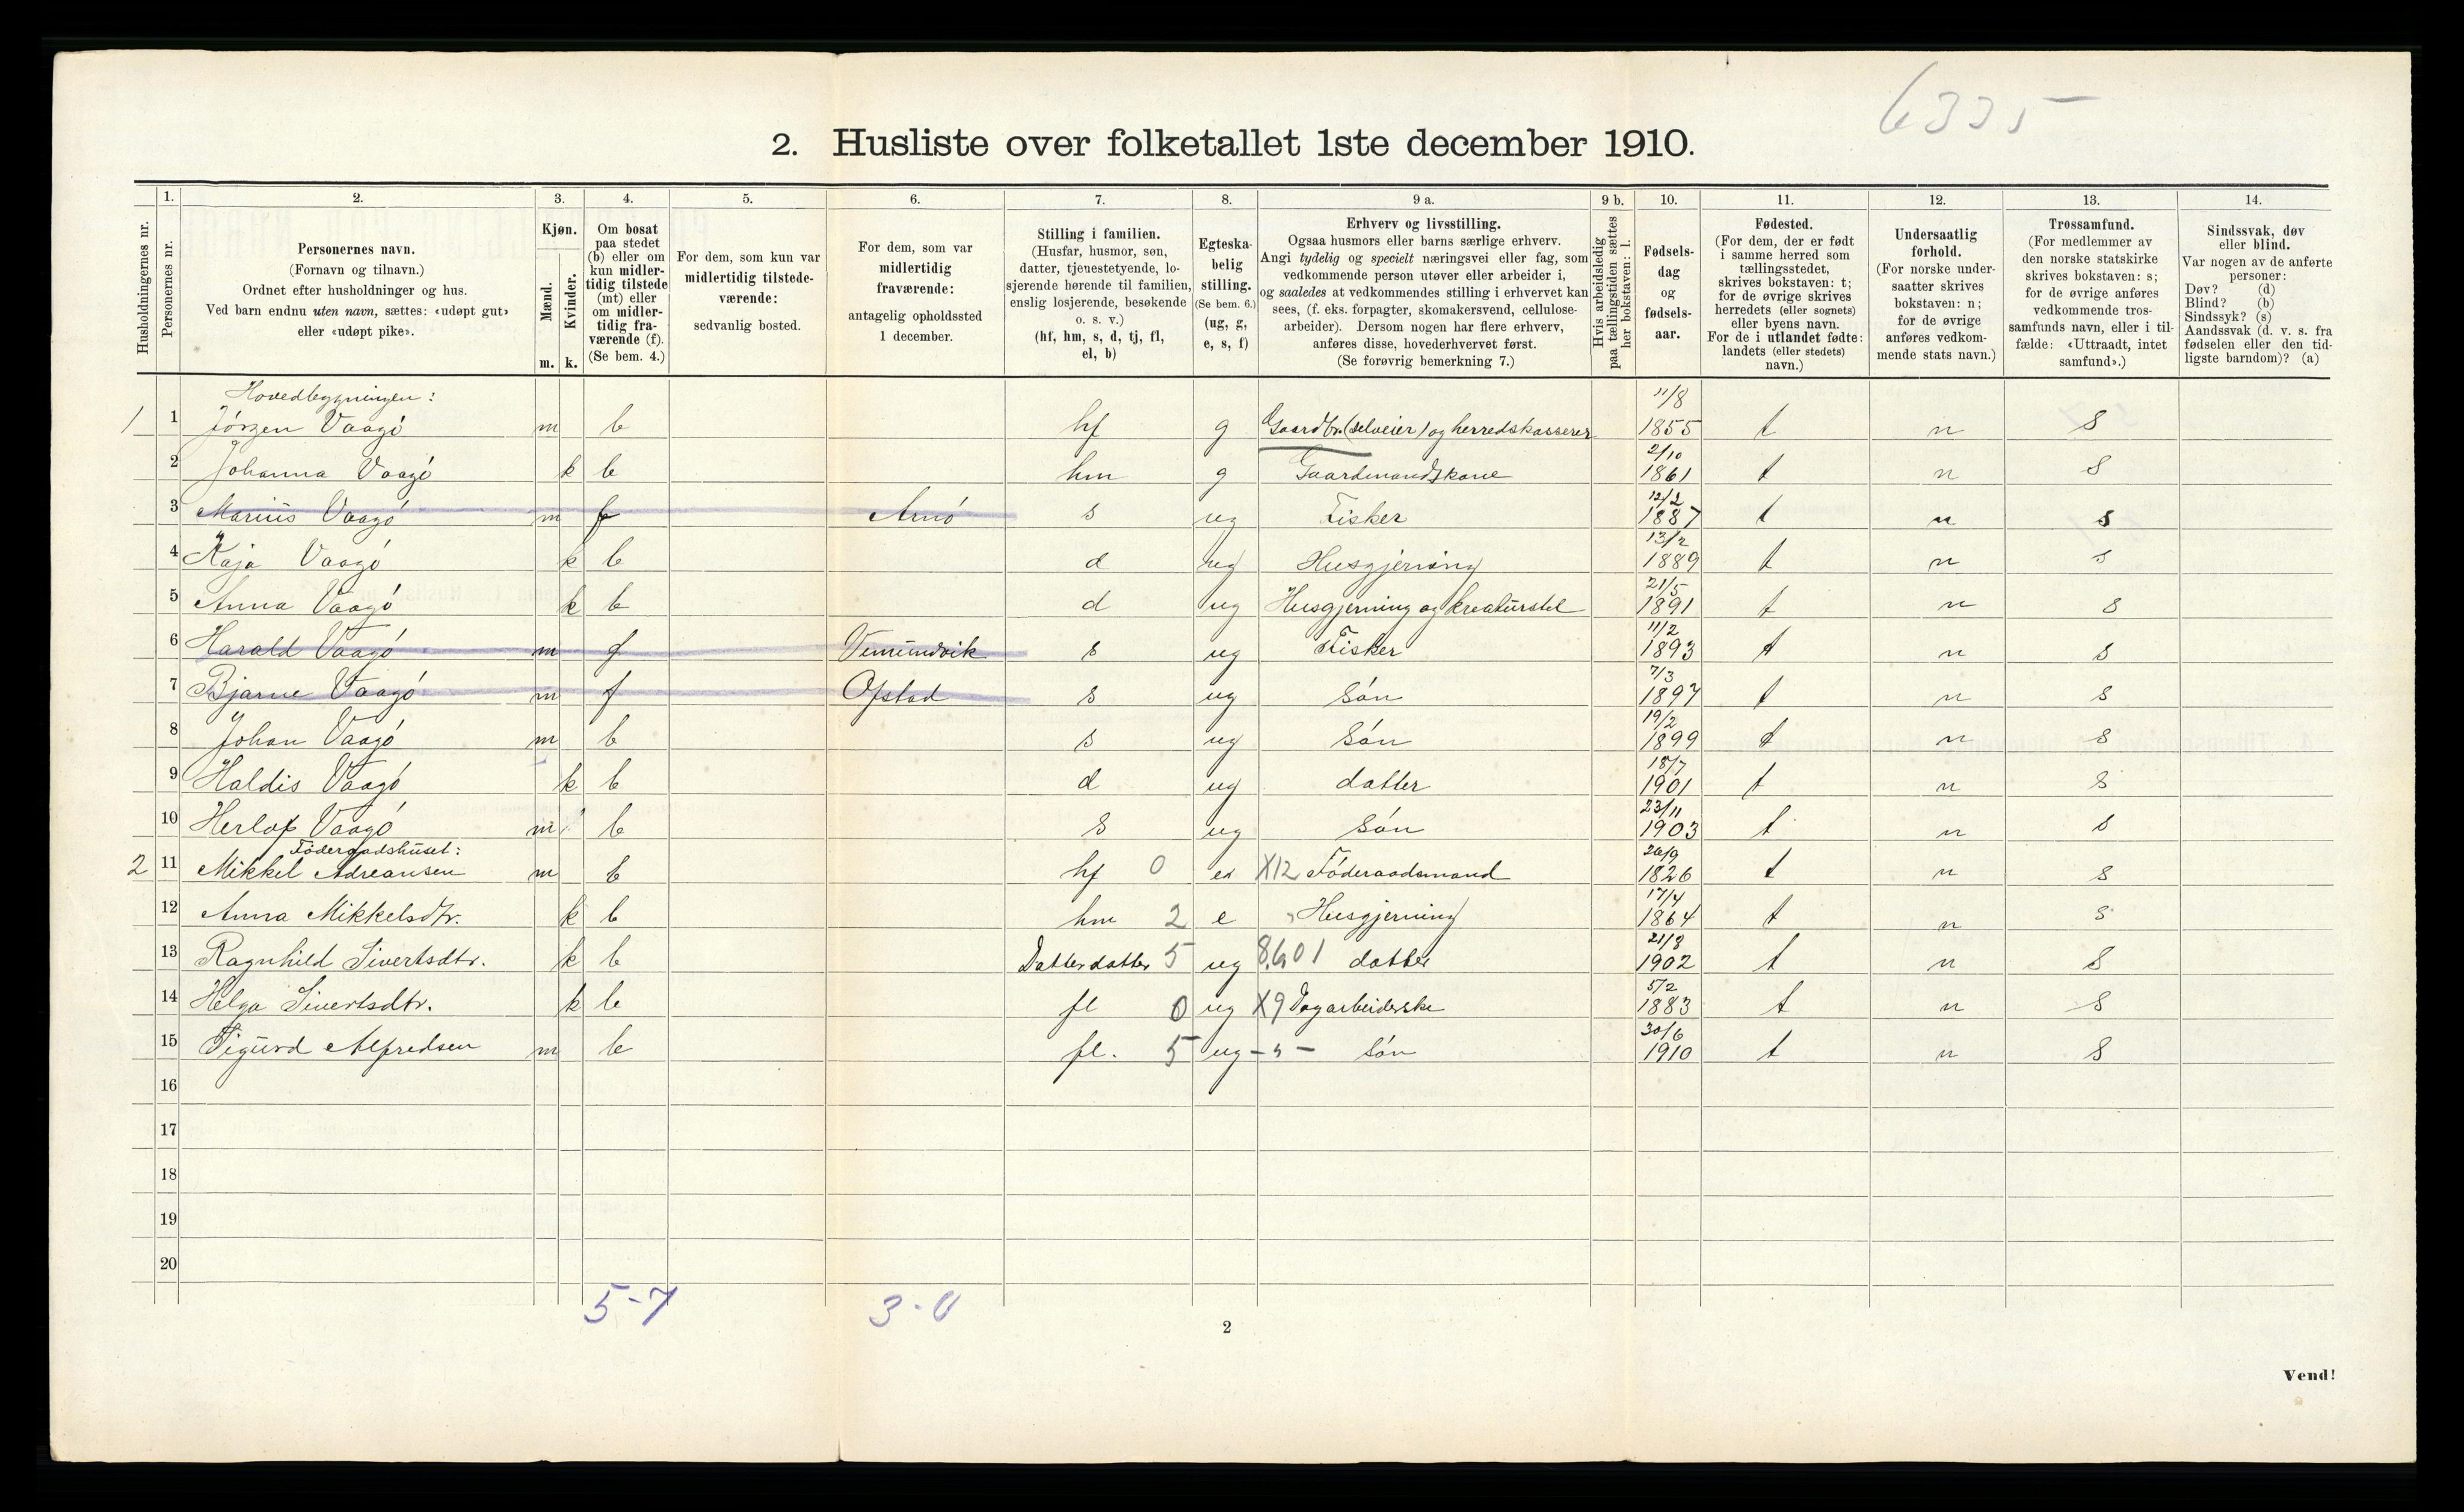 6335
2. Husliste over folketallet 1ste december 1910.
Husholdningernes nr.
1.
Personernes nr.
2.
Personernes navn.
(Fornavn og tilnavn.)
Ordnet efter husholdninger og hus.
Ved barn endnu uten navn, sættes: «udøpt gut»
eller «udøpt pike».
3.
Kjøn.
Mænd.
m.
Kvinder.
k.
4.
Om bosat
paa stedet
(b) eller om
kun midler-
tidig tilstede
(mt) eller
om midler-
tidig fra-
værende (f).
(Se bem. 4.)
5.
For dem, som kun var
midlertidig tilstede-
værende:
sedvanlig bosted.
6.
For dem, som var
midlertidig
fraværende:
antagelig opholdssted
1 december.
7.
Stilling i familien.
(Husfar, husmor, søn,
datter, tjenestetyende, lo-
sjerende hørende til familien,
enslig losjerende, besøkende
o. s. v.)
(hf, hm, s, d, tj, fl,
el, b)
8.
Egteska-
belig
stilling.
(Se bem. 6.)
(ug, g,
e, s, f)
9 a.
Erhverv og livsstilling.
Ogsaa husmors eller barns særlige erhverv.
Angi tydelig og specielt næringsvei eller fag, som
vedkommende person utøver eller arbeider i,
og saaledes at vedkommendes stilling i erhvervet kan
sees, (f. eks. forpagter, skomakersvend, cellulose-
arbeider). Dersom nogen har flere erhverv,
anføres disse, hovederhvervet først.
(Se forøvrig bemerkning 7.)
9 b.
Hvis arbeidsledig
paa tællingstiden sættes
her bokstaven: l.
10.
Fødsels-
dag
og
fødsels-
aar.
11.
Fødested.
(For dem, der er født
i samme herred som
tællingsstedet,
skrives bokstaven: t;
for de øvrige skrives
herredets (eller sognets)
eller byens navn.
For de i utlandet fødte:
landets (eller stedets)
navn.)
12.
Undersaatlig
forhold.
(For norske under-
saatter skrives
bokstaven: n;
for de øvrige
anføres vedkom-
mende stats navn.)
13.
Trossamfund.
(For medlemmer av
den norske statskirke
skrives bokstaven: s;
for de øvrige anføres
vedkommende tros-
samfunds navn, eller i til-
fælde: «Uttraadt, intet
samfund».)
14.
Sindssvak, døv
eller blind.
Var nogen av de anførte
personer:
Døv? (d)
Blind? (b)
Sindssyk? (s)
Aandssvak (d. v. s. fra
fødselen eller den tid-
ligste barndom)? (a)
Hovedbygningen:
1 1 Jörgen Vaagö m b hf g Gaardbr. (selveier) og herredskasserer 11/8 1855 t n s
2 Johanna Vaagö k b hm g Gaardmandskone 2/10 1861 t n s
3 Marius Vaagö m f Arnö s ug Fisker 12/2 1887 t n s
4 Kaja Vaagö k b d ug Husgjerning 13/2 1889 t n s
5 Anna Vaagö k b d ug Husgjerning og kreaturstel 21/5 1891 t n s
6 Harald Vaagö m f Vemundvik s ug Fisker 11/2 1893 t n s
7 Bjarne Vaagö m f Opstad s ug sön 7/3 1897 t n s
8 Johan Vaagö m b s ug sön 19/2 1899 t n s
9 Haldis Vaagö k b d ug datter 18/7 1901 t n s
10 Herlof Vaagö m b s ug sön 23/11 1903 t n s
Föderaadshuset:
2 11 Mikkel Adreansen m b hf 0 e X12 Föderaadsmand 26/9 1826 t n s
12 Anna Mikkelsdtr. k b hm 2 e Husgjerning 17/4 1864 t n s
13 Ragnhild Sivertsdtr. k b Datterdatter 5 ug datter 21/8 1902 t n s
14 Helga Sivertsdtr. k b fl 0 ug X9 Dagarbeiderske 5/2 1883 t n s
15 Sigurd Alfredsen m b fl. 5 ug - s - sön 30/6 1910 t n s
16
17
18
19
20
5-7 3-0
2
Vend!